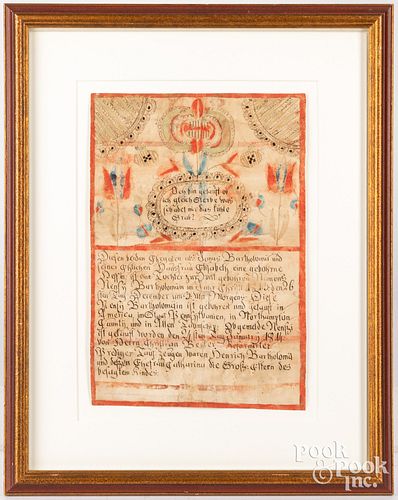 Ich bin getauft ob
ich gleich Sterbe was
schadet mir das kühle
Grab?
Diesen beden Ehegaten als Bartholomä und
seiner Ehlichen Hausfrau Elisabeth eine geborne
ist eine Tochter zur Welt gebohren Namens
Bartholomäin im Jahr Christi den 26
Tag December um Uhr Morgens Diese
Bartholomäin ist gebohren und getauft in
America, im Staat Pensylvanien, in Northampton
Caunty und in Allen Taunschip Obgemelde
ist getauft worden den Januarÿ 1814
von Herrn Becker
Prediger Tauf zeugen waren Henrich Bartholomä
und dessen Ehefrau Catharina die Groß Eltern des
besagten Kindes
POOK
& POOK
Inc.